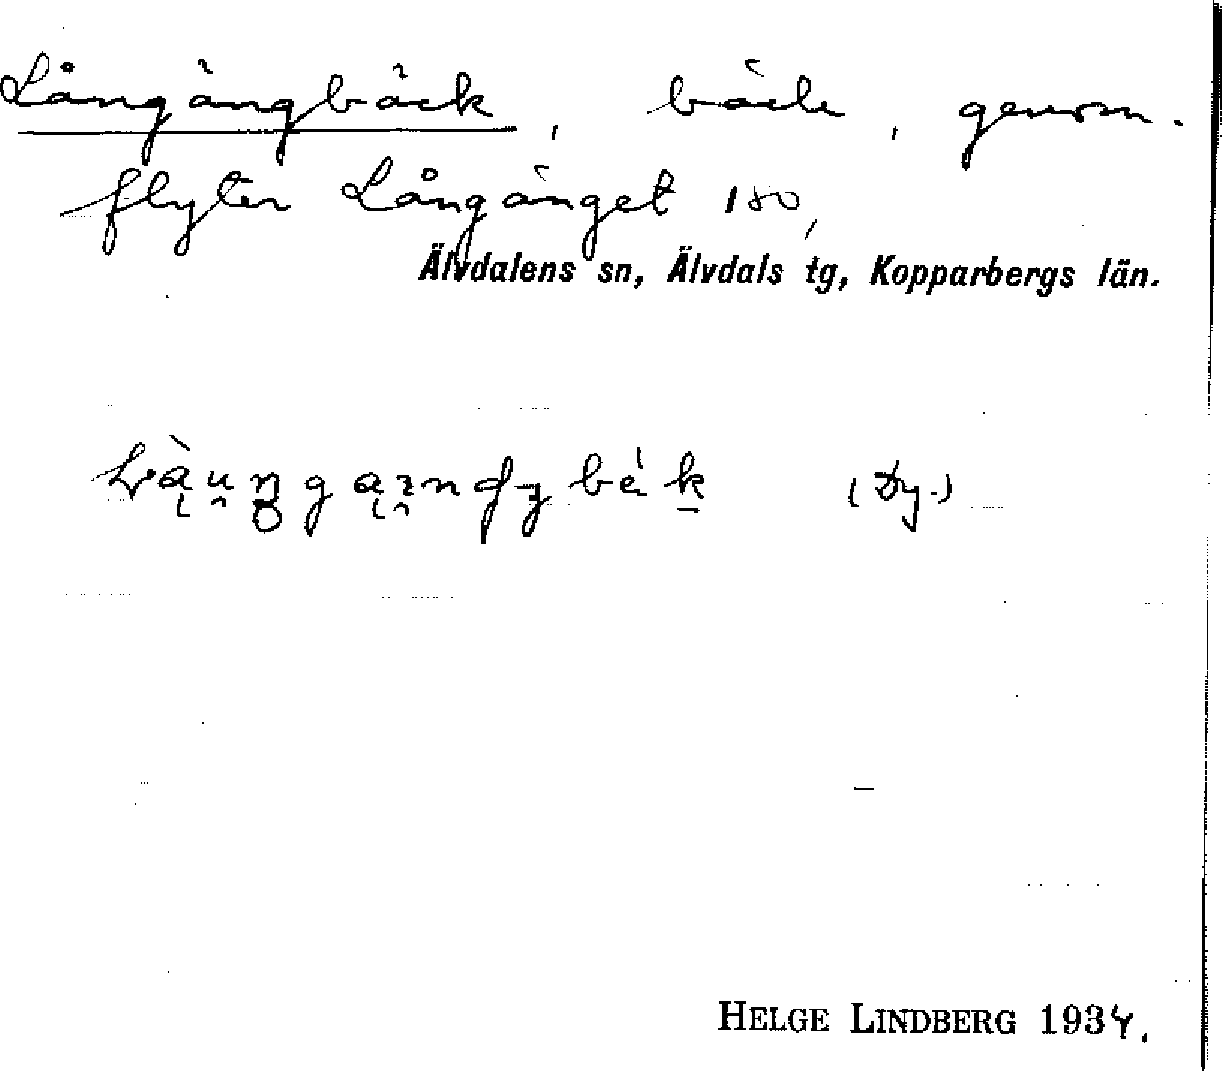 Långängbäck, bäck, genom-
flyter Långänget 180,
Älvdalens sn, Älvdals tg, Kopparbergs län.
(Dy.)
HELGE LINDBERG 1934.